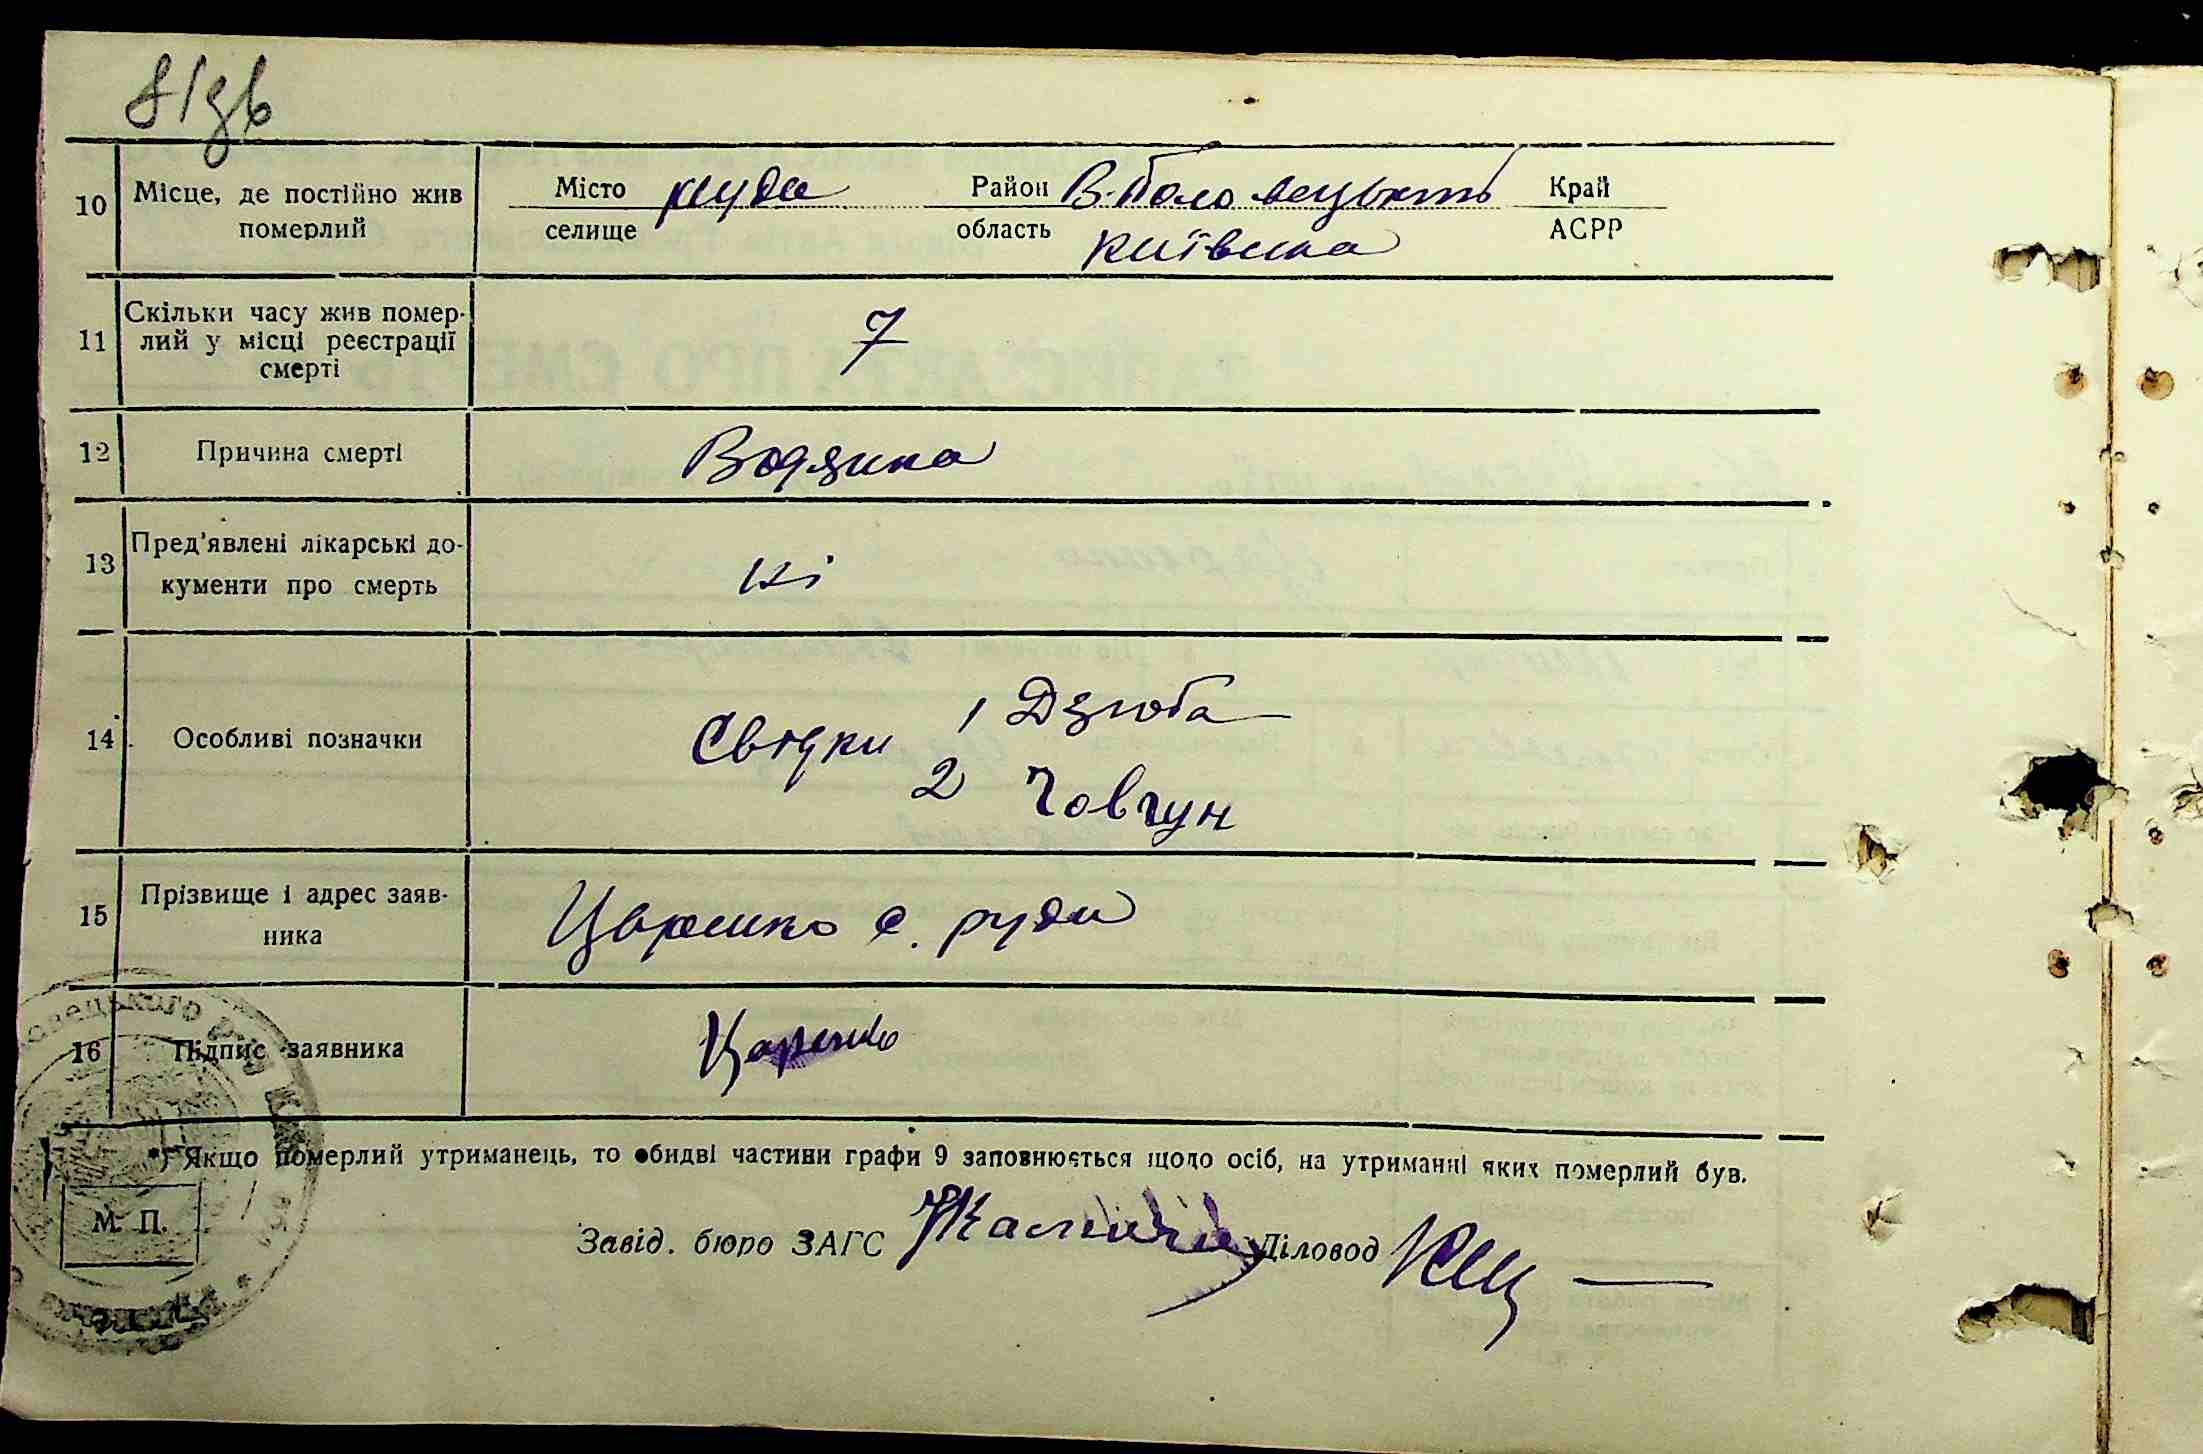 81зв
10 Місце, де постійно жив померлий
Місто руда Район В-Половецький Край
селище область Київська АСРР
11 Скільки часу жив помер-
лий у місці реєстрації
смерті
7
12 Причина смерті Водянка
13 Пред'явлені лікарські до-
кументи про смерть
ні
14 Особливі позначки
Свідки 1 Дзюба
2 Човгун
15 Прізвище і адрес заяв-
ника
Царенко с. руда
16 Підпис заявника Царенко
*) Якщо померлий утриманець, то обидві частини графи 9 заповнюється щодо осіб, на утриманні яких померлий був.
М. П.
Завід. бюро ЗАГС Діловод